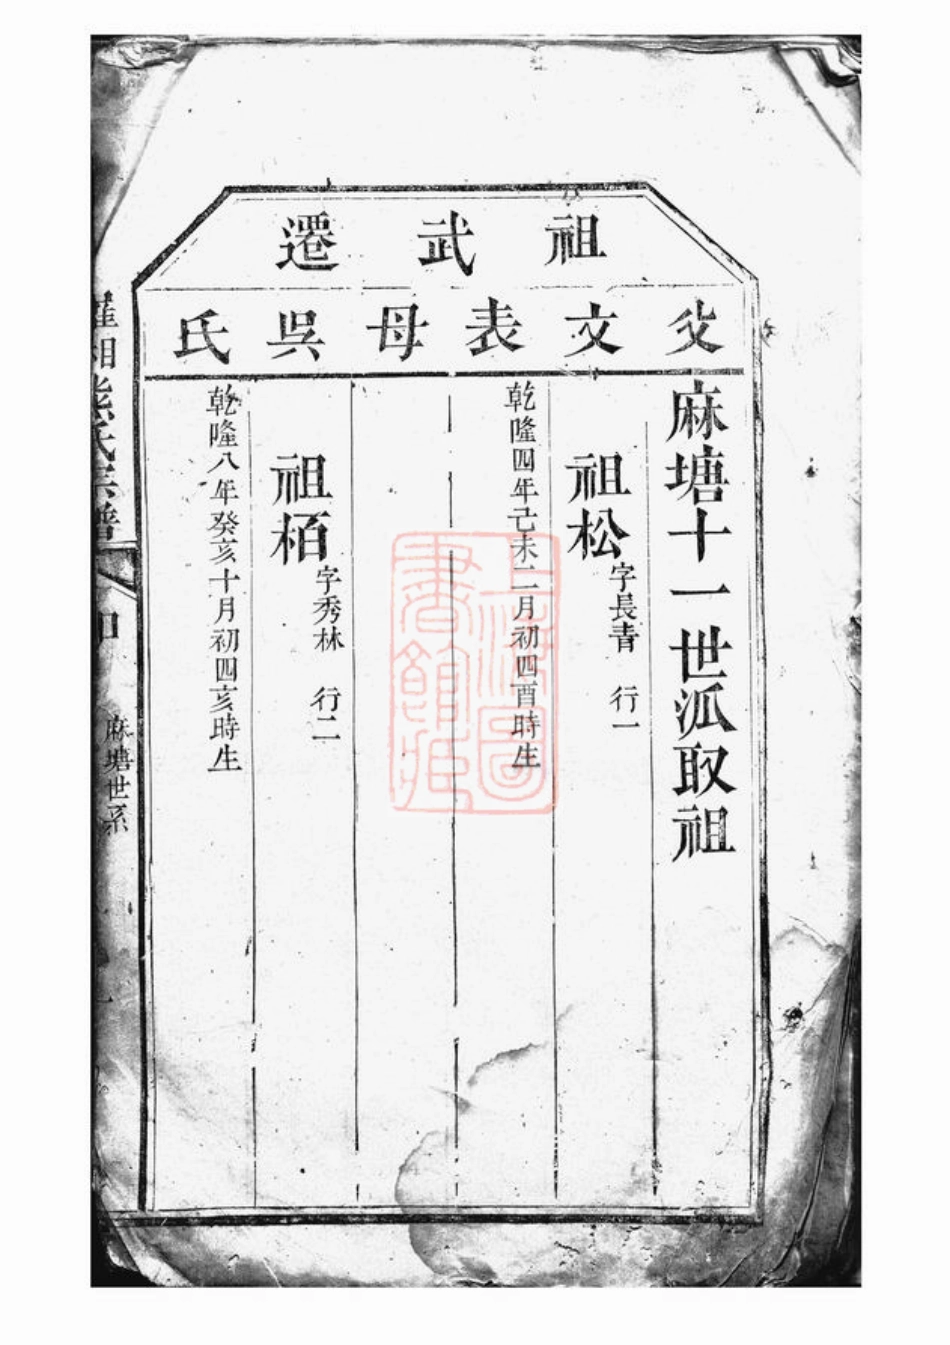 祖武遷
父文表母吳氏
麻塘十一世派取祖
祖松字長青 行一
乾隆四年己未二月初四酉時生
祖栢字秀林 行二
乾隆八年癸亥十月初四亥時生
熊氏宗譜
麻塘世系
上海圖書館藏